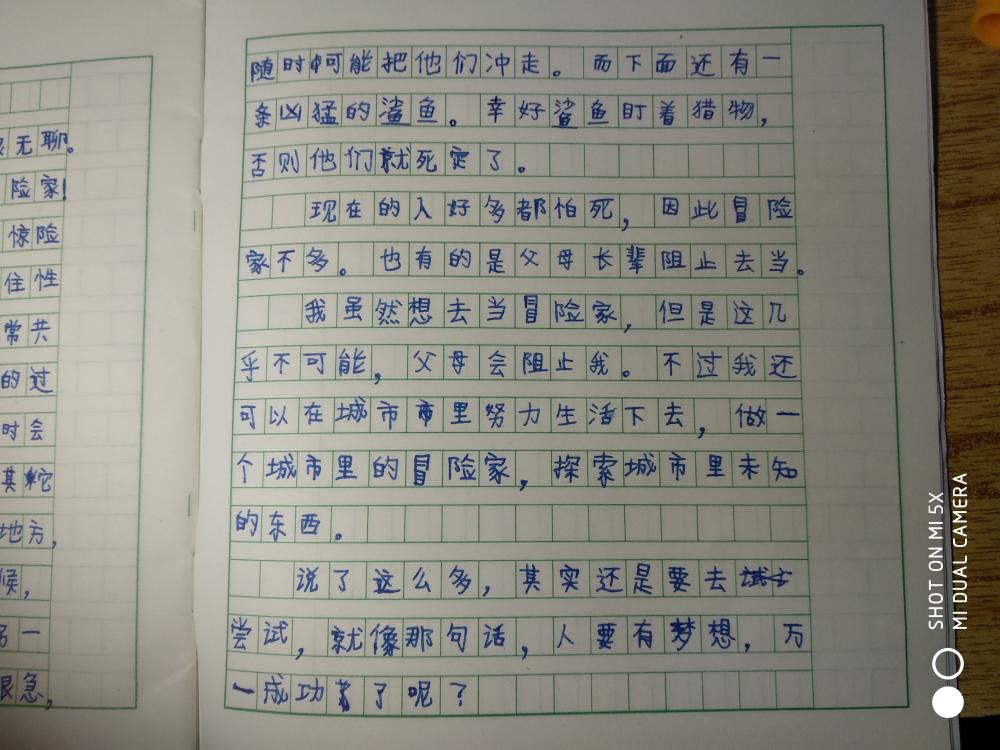 无聊。
险家!
惊险
住性
常共
的过
时会
其蛇
地方,
候,
一
很急,
随时可能把他们冲走。而下面还有一
条凶猛的鲨鱼。幸好鲨鱼盯着猎物,
否则他们就死定了。
现在的人好多都怕死,因此冒险
家不多。也有的是父母长辈阻止去当。
我虽然想去当冒险家,但是这几
乎不可能,父母会阻止我。不过我还
可以在城市市里努力生活下去,做一
个城市里的冒险家,探索城市里未知
的东西。
说了这么多,其实还是要去
尝试,就像那句话,人要有梦想,万
一成功了呢?
SHOT ON MI 5X
MI DUAL CAMERA